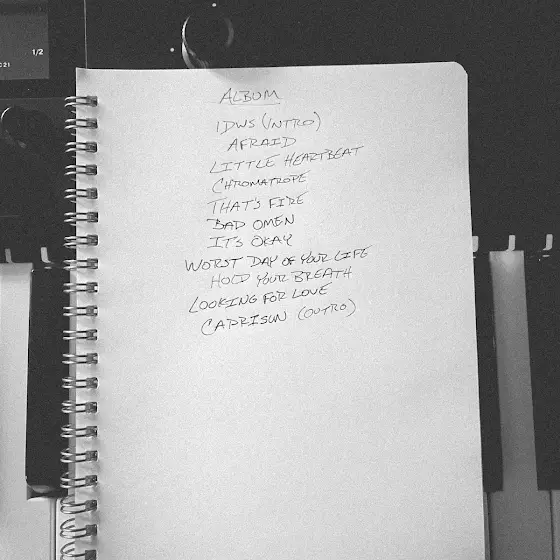 1/2
C21
ALBUM
IDWS (INTRO)
AFRAID
LITTLE HEARTBEAT
CHROMATROPE
THAT'S FIRE
BAD OMEN
IT'S OKAY
WORST DAY OF YOUR LIFE
HOLD YOUR BREATH
LOOKING FOR LOVE
CAPRISUN (OUTRO)